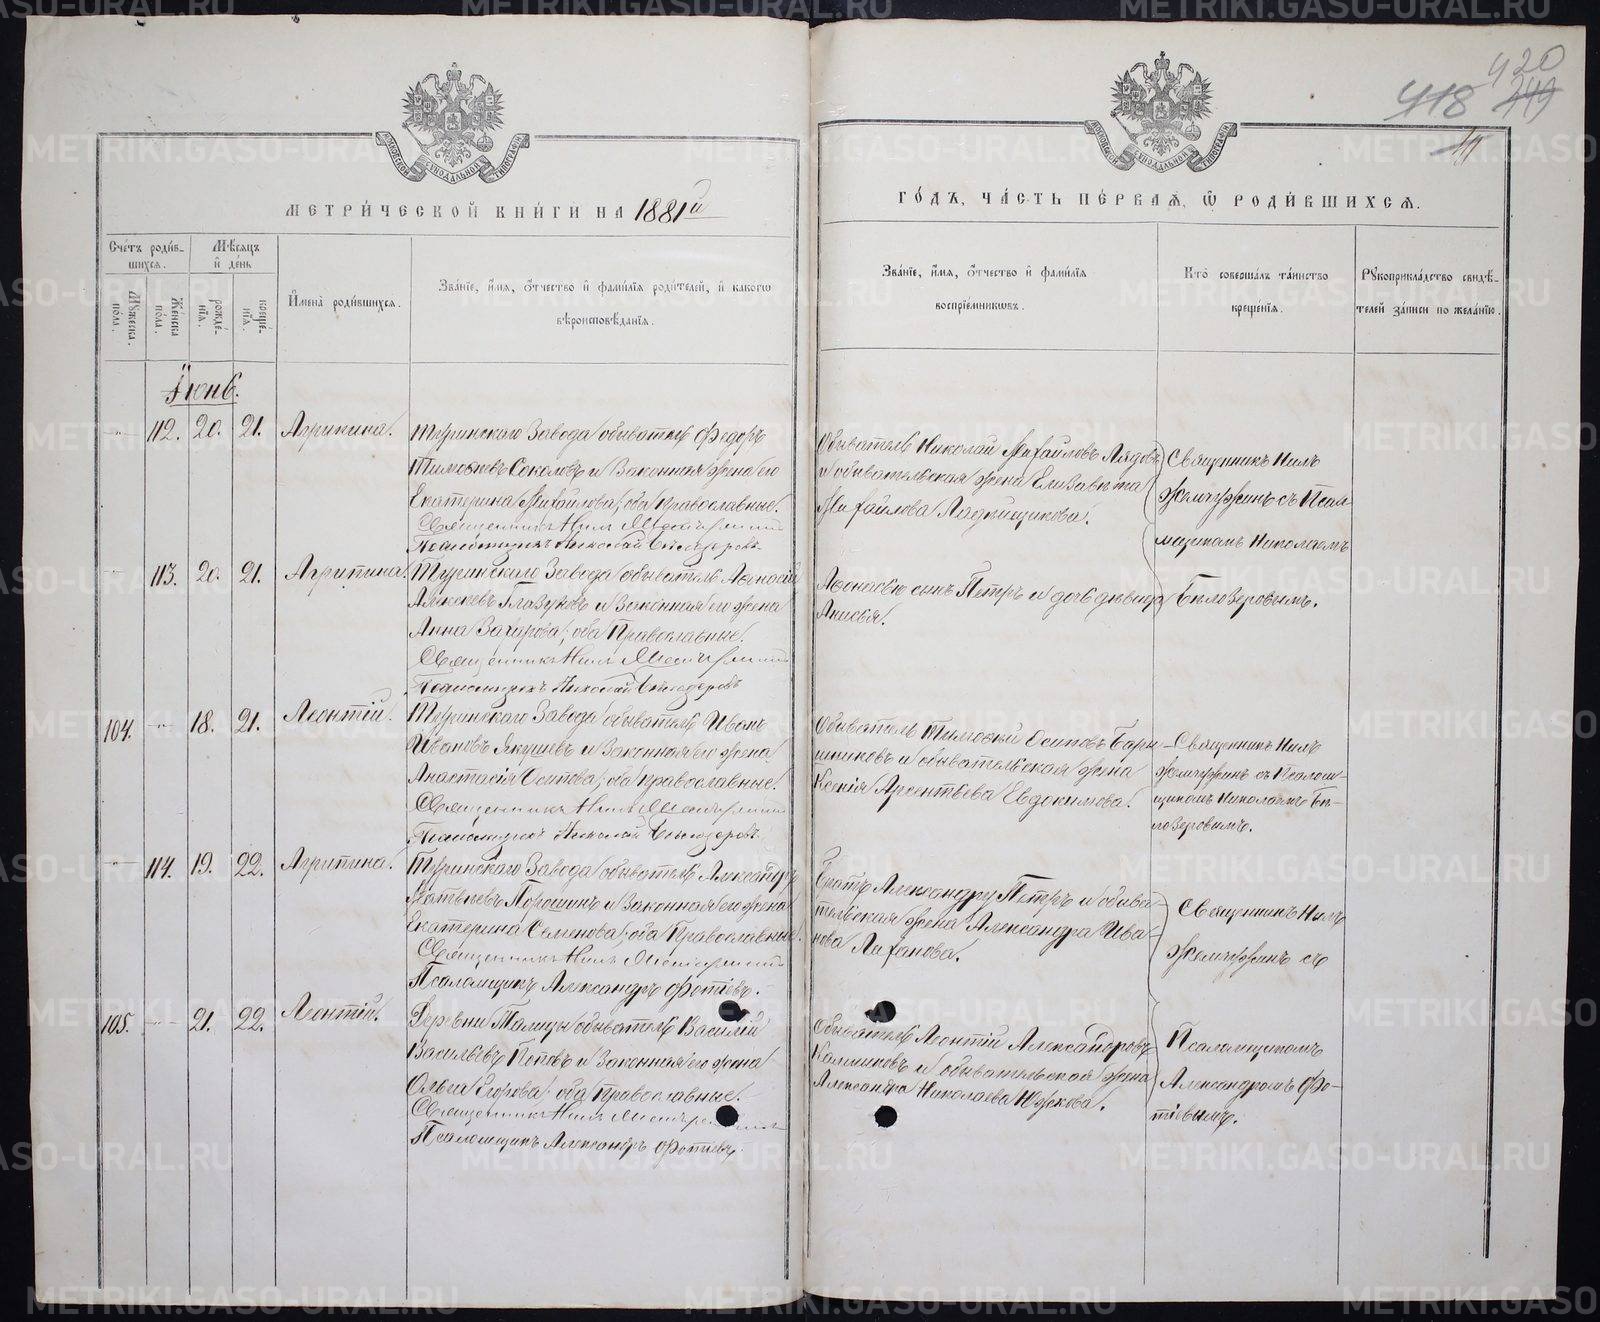 420
418 419
МЕТРИ́ЧЕСКОЙ КНИ́ГИ НА 1881й
ГО́ДЪ, ЧА́СТЬ ПЕ́РВАЯ, Ѿ РОДИ́ВШИХСЯ.
Сче́тъ роди́в-
шихся.
Мѣ́сяцъ
и҆ де́нь
Му́жеска
по́ла.
Же́нска
по́ла.
рожде́-
нїя.
креще́-
нїя.
И҆мена̀ роди́вшихся.
Зва́нїе, и҆́мя, ѻ҆́тчество и҆ фами́лїя роди́телей, и҆ како́гѡ
вѣроисповѣ́данїя.
Зва́нїе, и҆́мя, ѻ҆́тчество и҆ фами́лїя
воспрїе́мникѡвъ.
Кто̀ соверша́лъ та́инство
креще́нїя.
Рꙋкоприкла́дство свидѣ́-
телей за́писи по жела́нїю.
Іюнь.
112. 20. 21. Агрипина.
Туринскаго Завода обыватель Федоръ
Тимофѣевъ Соколовъ и Законная жена его
Екатерина Михайлова; оба Православные.
Священникъ Нилъ
Псаломщикъ Николай Бѣлозеровъ
Обыватель Николай Михайловъ Лядовъ
и обывательская жена Елизавета
Михайлова Ладейщикова.
Священникъ Нилъ
Жемчужинъ съ Псал-
мщикомъ Николаемъ
Бѣлозеровымъ.
113. 20. 21. Агрипина.
Туринскаго Завода обыватель Афонасій
Алексѣевъ Глазуновъ и Законная его жена
Анна Захарова; оба Православные.
Священникъ Нилъ
Псаломщикъ Николай Бѣлозеровъ
Афонасью сынъ Петръ и дочь дѣвица
Анисья.
104. 18. 21. Леонтій.
Туринскаго Завода обыватель Иванъ
Ивановъ Якушевъ и Законная его жена
Анастасія Осипова; оба православные.
Священникъ Нилъ
Псаломщикъ Николай Бѣлозеровъ
Обыватель Тимофей Осиповъ Бари-
шниковъ и обывательская жена
Ксенія Арсентьева Евдокимова.
Священникъ Нилъ
Жемчужинъ съ Псалом-
щикомъ Николаемъ Бѣ-
лозеровымъ.
114. 19. 22. Агрипина.
Туринскаго Завода обыватель Александръ
Матвѣевъ Порошинъ и Законная его жена
Екатерина Семенова; оба Православные.
Священникъ Нилъ
Псаломщикъ Александръ Фотіевъ.
Братъ Александру Петръ и обыва-
тельская жена Александра Ива-
нова Лаханова.
Священникъ Нилъ
Жемчужинъ съ
Псаломщикомъ
Александромъ Фо-
тіевымъ.
105. 21. 22. Леонтій.
Деревни Талицы обыватель Василій
Васильевъ Поповъ и Законная его жена
Ольга Егорова; оба православные.
Священникъ Нилъ
Псаломщикъ Александръ Фотіевъ
Обыватель Леонтій Александровъ
Калмыковъ и обывательская жена
Александра Николаева Южакова.
METRIKI.GASO-URAL.RU